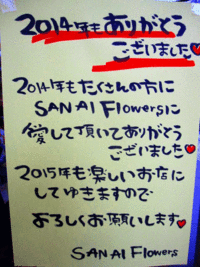 2014年もありがとう
ございました
2014年もたくさんの方に
SANAI Flowersに
愛して頂いてありがとう
ございました
2015年も楽しいお店に
してゆきますので
よろしくお願いします
SANAI Flowers